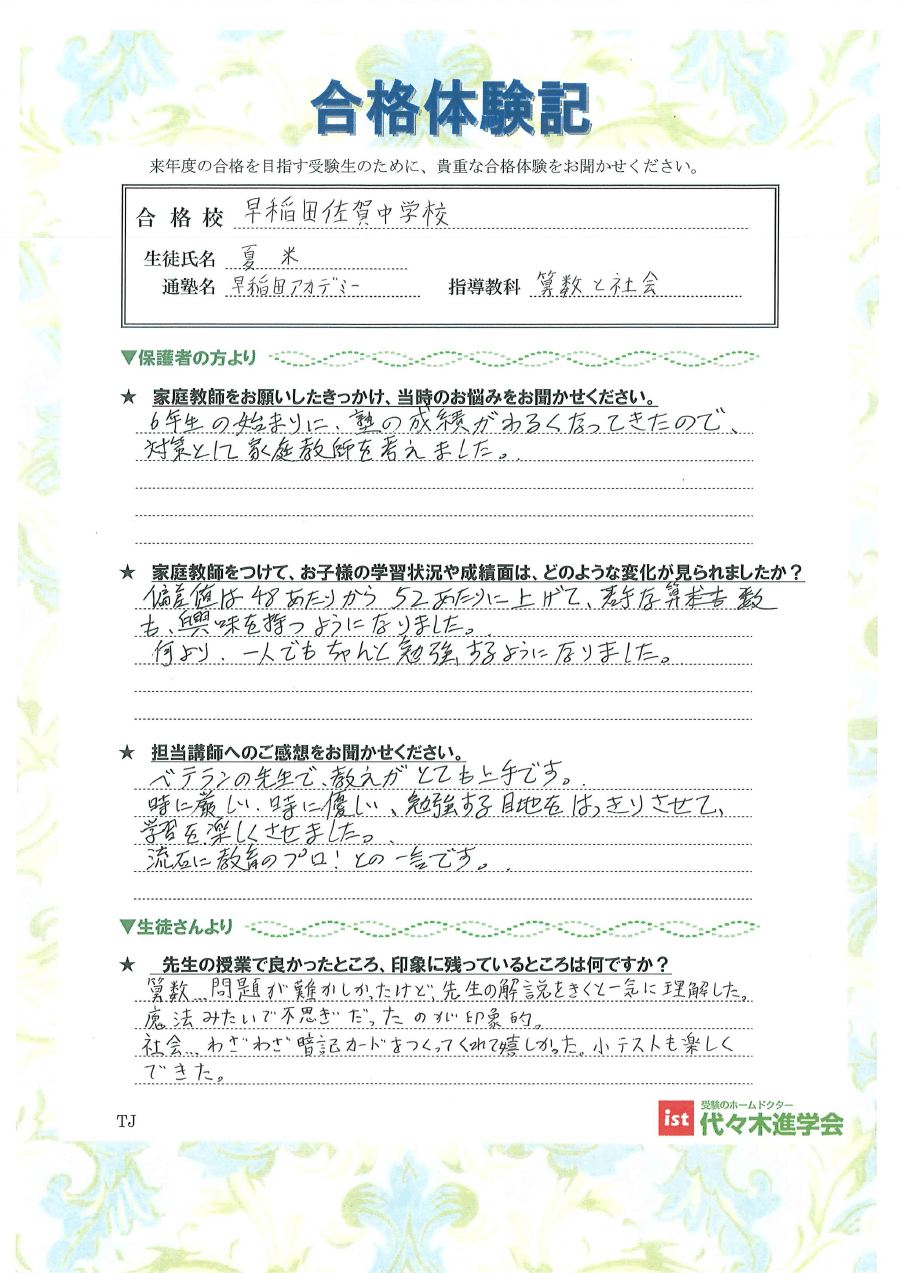 合格体験記
来年度の合格を目指す受験生のために、貴重な合格体験をお聞かせください。
合格校 早稲田佐賀中学校
生徒氏名 夏 米
通塾名 早稲田アカデミー 指導教科 算数と社会
▼保護者の方より
★ 家庭教師をお願いしたきっかけ、当時のお悩みをお聞かせください。
6年生の始まりに、塾の成績がわるくなってきたので、
対策として家庭教師を考えました。
★ 家庭教師をつけて、お子様の学習状況や成績面は、どのような変化が見られましたか?
偏差値は48あたりから52あたりに上げて、苦手な算数
も、興味を持つようになりました。
何より、一人でもちゃんと勉強するようになりました。
★ 担当講師へのご感想をお聞かせください。
ベテランの先生で、教えがとても上手です。
時に厳しい、時に優しい、勉強する目地をはっきりさせて、
学習を楽しくさせました。
流石に教育のプロ!との一言です。
▼生徒さんより
★ 先生の授業で良かったところ、印象に残っているところは何ですか?
算数…問題が難かしかったけど、先生の解説をきくと一気に理解した。
魔法みたいで不思ぎだったのが印象的。
社会…わざわざ暗記カードをつくってくれて嬉しかった。小テストも楽しく
できた。
TJ
ist
受験のホームドクター
代々木進学会